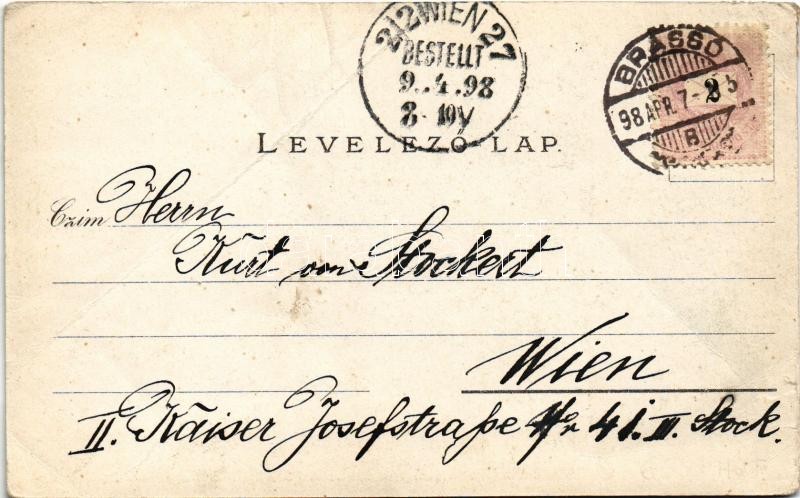 2/2 WIEN 27
BESTELLT
9. 4. 98
8-10V
BRASSÓ
98 APR. 7
B
2
LEVELEZŐ-LAP.
Czim Herrn
Kurt von Stockert
Wien
II. Kaiser Josefstraße 41. III. Stock.